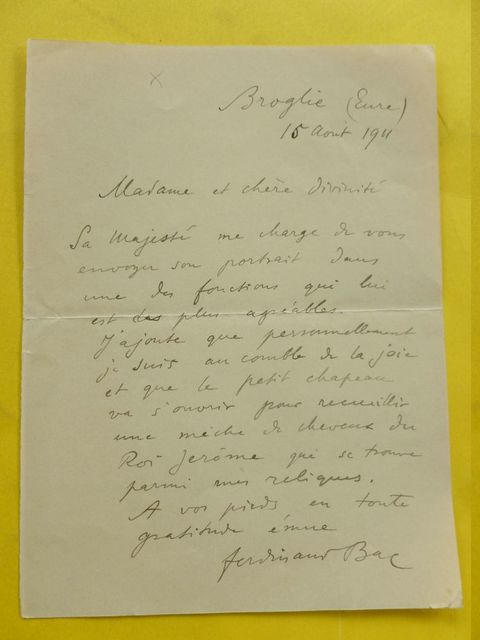 Broglie (Eure)
15 août 1911
Madame et chère divinité
Sa Majesté me charge de vous
envoyer son portrait dans
une des fonctions qui lui
est des plus agréables.
J'ajoute que personnellement
je suis au comble de la joie
et que le petit chapeau
va s'ouvrir pour recueillir
une mèche de cheveux du
Roi Jerôme qui se trouve
parmi mes reliques.
A vos pieds en toute
gratitude émue
Ferdinand Bac